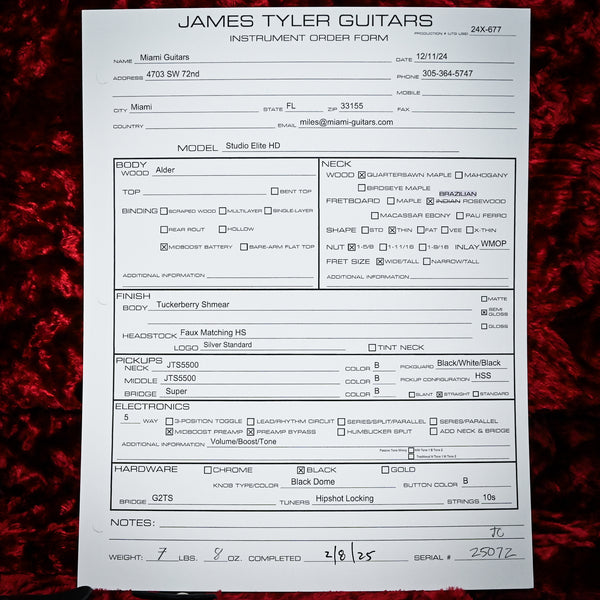 JAMES TYLER GUITARS
INSTRUMENT ORDER FORM
PRODUCTION # (JTG USE) 24X-677
NAME Miami Guitars DATE 12/11/24
ADDRESS 4703 SW 72nd PHONE 305-364-5747
MOBILE
CITY Miami STATE FL ZIP 33155 FAX
COUNTRY EMAIL miles@miami-guitars.com
MODEL Studio Elite HD
BODY
WOOD Alder
TOP BENT TOP
BINDING SCRAPED WOOD MULTILAYER SINGLE-LAYER
REAR ROUT HOLLOW
☒ MIDBOOST BATTERY BARE-ARM FLAT TOP
ADDITIONAL INFORMATION
NECK
WOOD ☒ QUARTERSAWN MAPLE MAHOGANY
BIRDSEYE MAPLE
BRAZILIAN
FRETBOARD MAPLE ☒ INDIAN ROSEWOOD
MACASSAR EBONY PAU FERRO
SHAPE STD ☒ THIN FAT VEE X-THIN
NUT ☒ 1-5/8 1-11/16 1-9/16 INLAY WMOP
FRET SIZE ☒ WIDE/TALL NARROW/TALL
ADDITIONAL INFORMATION
FINISH
BODY Tuckerberry Shmear
MATTE
☒ SEMI GLOSS
GLOSS
HEADSTOCK Faux Matching HS
LOGO Silver Standard TINT NECK
PICKUPS
NECK JTS5500 COLOR B PICKGUARD Black/White/Black
MIDDLE JTS5500 COLOR B PICKUP CONFIGURATION HSS
BRIDGE Super COLOR B SLANT ☒ STRAIGHT STANDARD
ELECTRONICS
5 WAY 3-POSITION TOGGLE LEAD/RHYTHM CIRCUIT SERIES/SPLIT/PARALLEL SERIES/PARALLEL
☒ MIDBOOST PREAMP ☒ PREAMP BYPASS HUMBUCKER SPLIT ADD NECK & BRIDGE
ADDITIONAL INFORMATION Volume/Boost/Tone
HARDWARE CHROME ☒ BLACK GOLD
KNOB TYPE/COLOR Black Dome BUTTON COLOR B
BRIDGE G2TS TUNERS Hipshot Locking STRINGS 10s
NOTES:
WEIGHT: 7 LBS. 8 OZ. COMPLETED 2/8/25 SERIAL # 25072